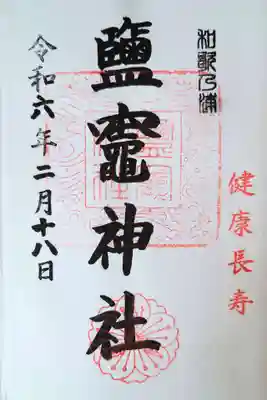 和歌乃浦
健康長寿
鹽竈神社
令和六年二月十八日